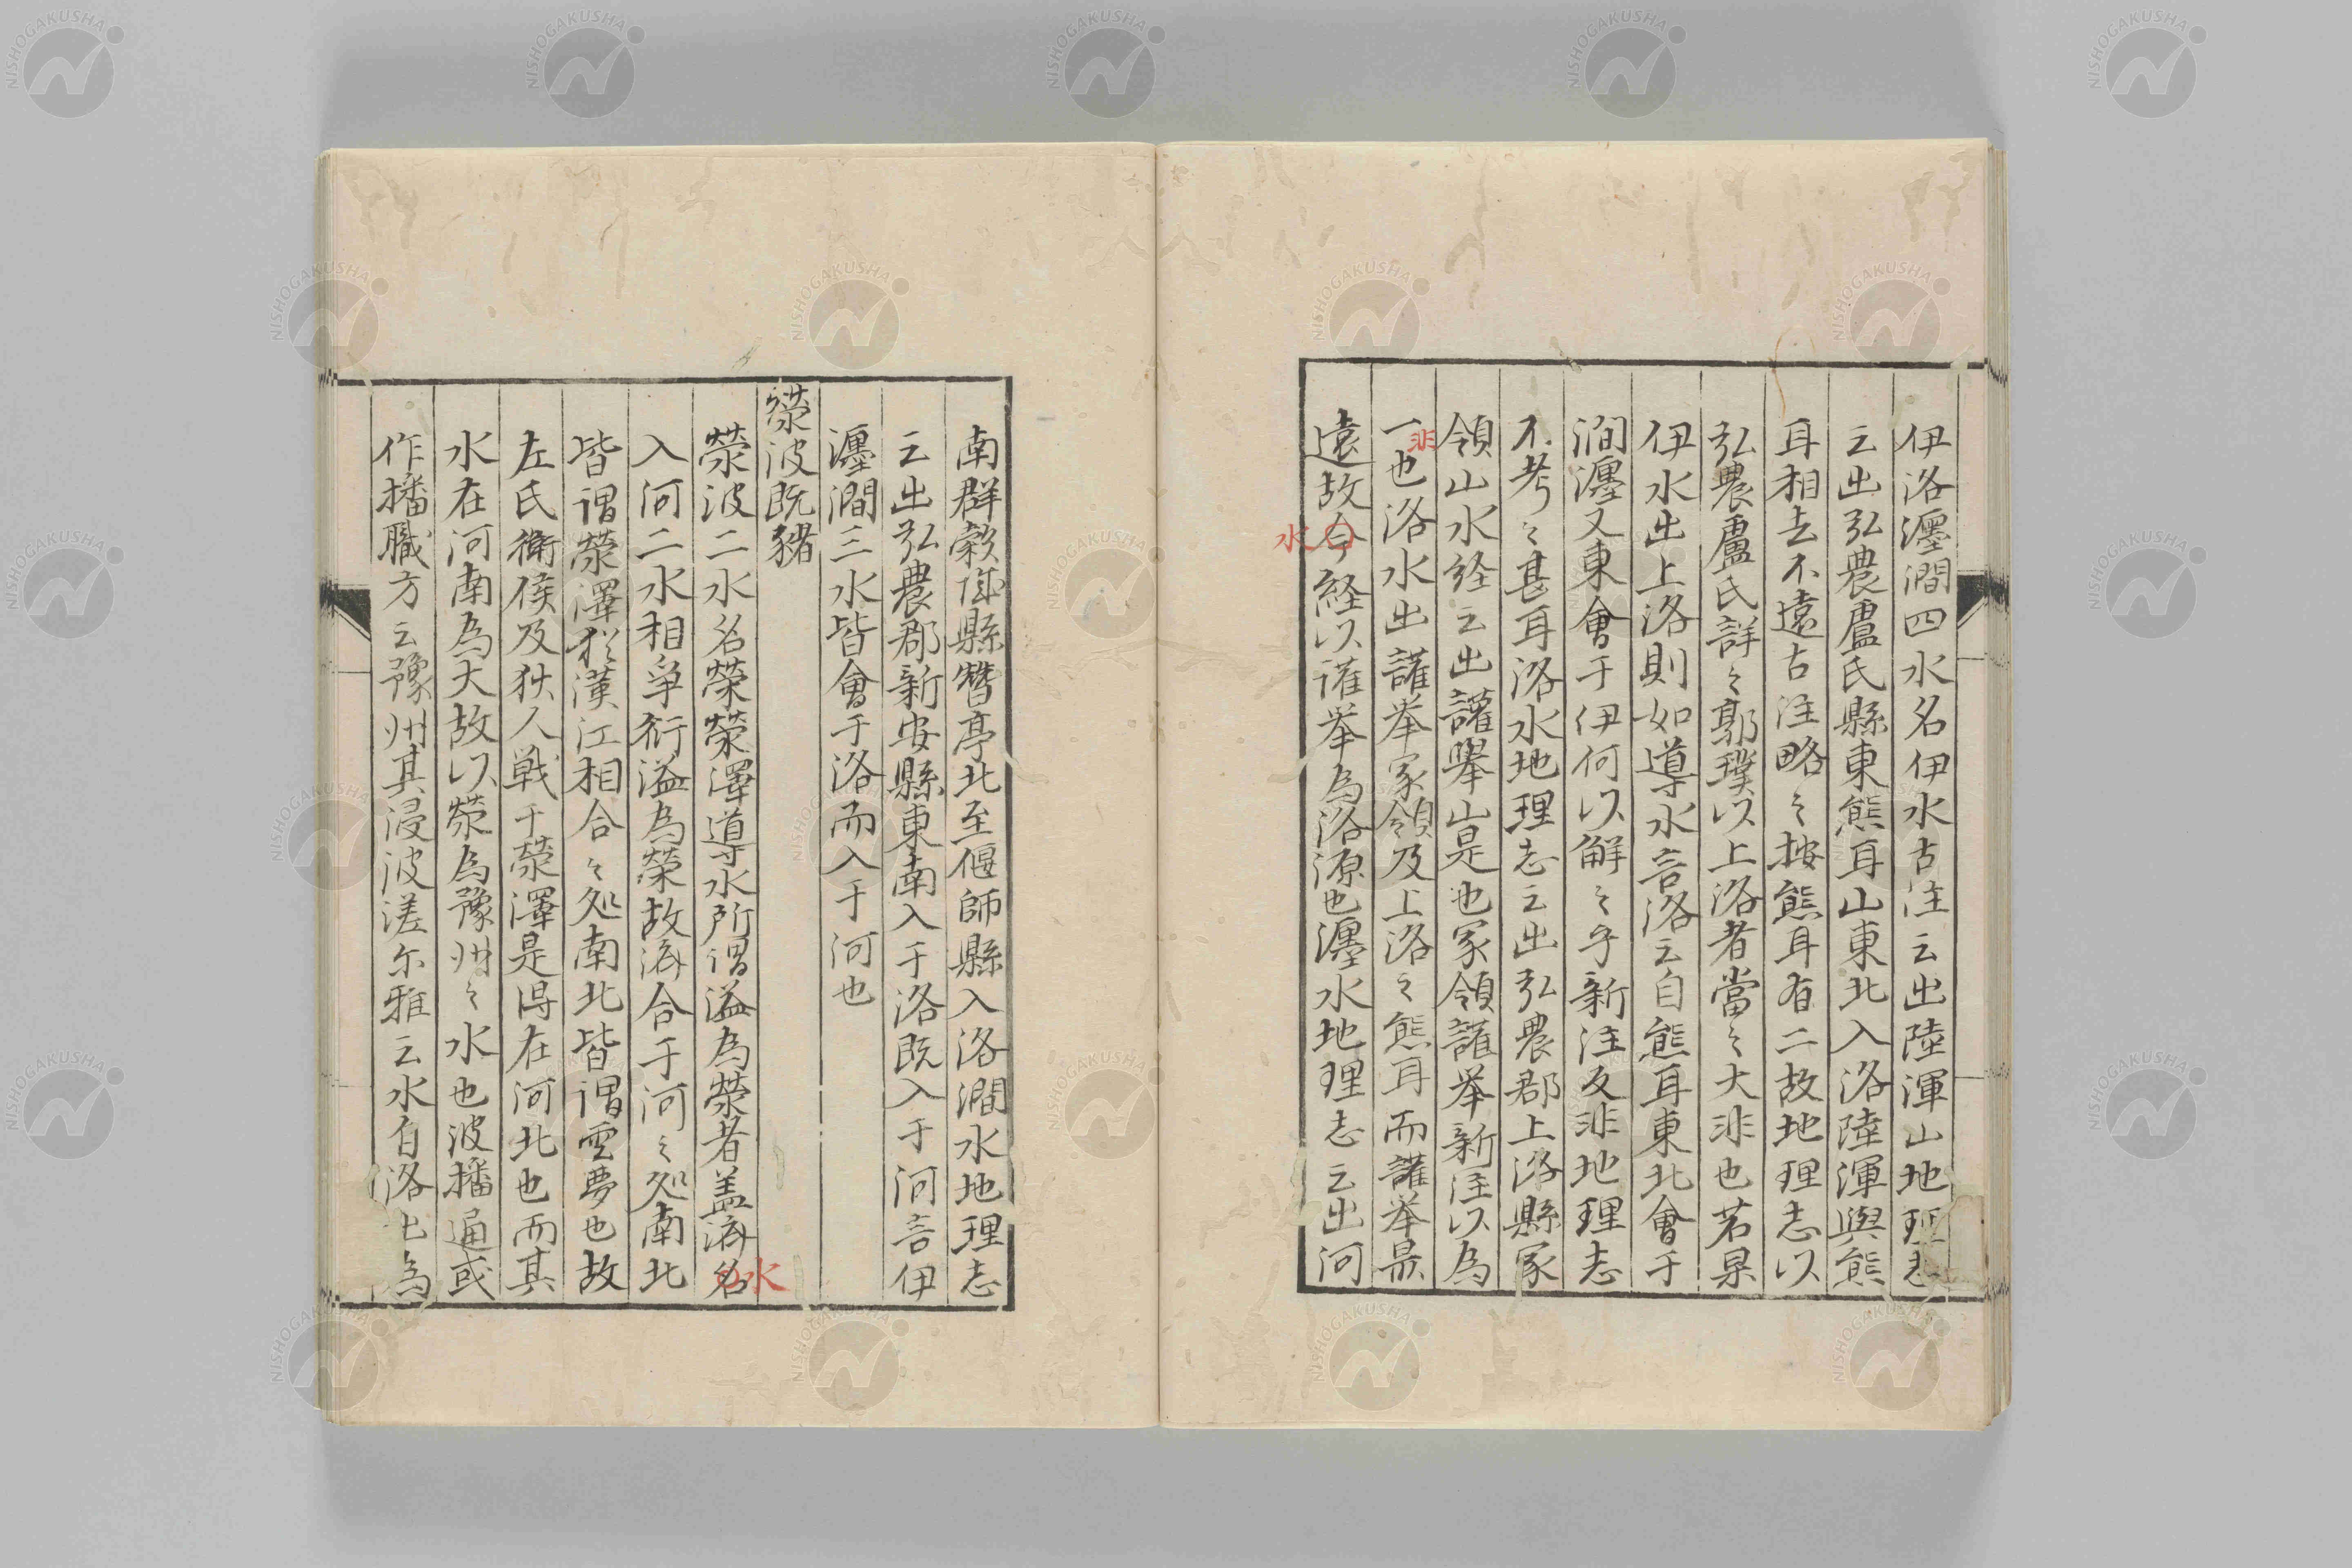 伊洛瀍澗四水名伊水古注云出陸渾山地理志
云出弘農盧氏縣東熊耳山東北入洛陸渾與熊
耳相去不遠古注略之按熊耳有二故地理志以
弘農盧氏詳之郭璞以上洛者當之大非也若果
伊水出上洛則如導水言洛云自熊耳東北會于
澗瀍又東會于伊何以解之乎新注反非地理志
不考之甚耳洛水地理志云出弘農郡上洛縣冢
領山水経云出讙舉山是也冢領讙挙新注以為
一也洛水出讙挙冢領及上洛之熊耳而讙挙最
非
遠故今経以讙挙為洛源也瀍水地理志云出河
水
南群穀城縣朁亭北至偃師縣入洛澗水地理志
云出弘農郡新安縣東南入于洛既入于河言伊
瀍澗三水皆會于洛而入于河也
荥波既豬
荥波二水名榮榮澤導水所謂溢為榮者盖済名
水
入河二水相争衍溢為榮故済合于河之処南北
皆謂荥澤猶漢江相合之処南北皆謂雲夢也故
左氏衛侯及狄人戦于荥澤是得在河北也而其
水在河南為大故以荥為豫州之水也波播通或
作播職方云豫州其浸波溠尔雅云水自洛出為
NISHOGAKUSHA